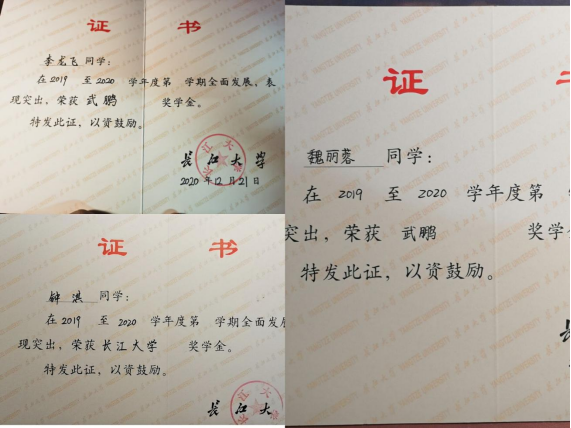 证 书
李龙飞 同学：
在2019 至2020 学年度第 学期全面发展、表
现突出，荣获 武鹏 奖学金。
特发此证，以资鼓励。
长江大学
2020年12月21日
证 书
钟淇 同学：
在2019 至2020 学年度第 学期全面发展
现突出，荣获 长江大学 奖学金。
特发此证，以资鼓励。
长江大
证
魏丽蓉 同学：
在 2019 至 2020 学年度第
突出，荣获 武鹏 奖学
特发此证，以资鼓励。